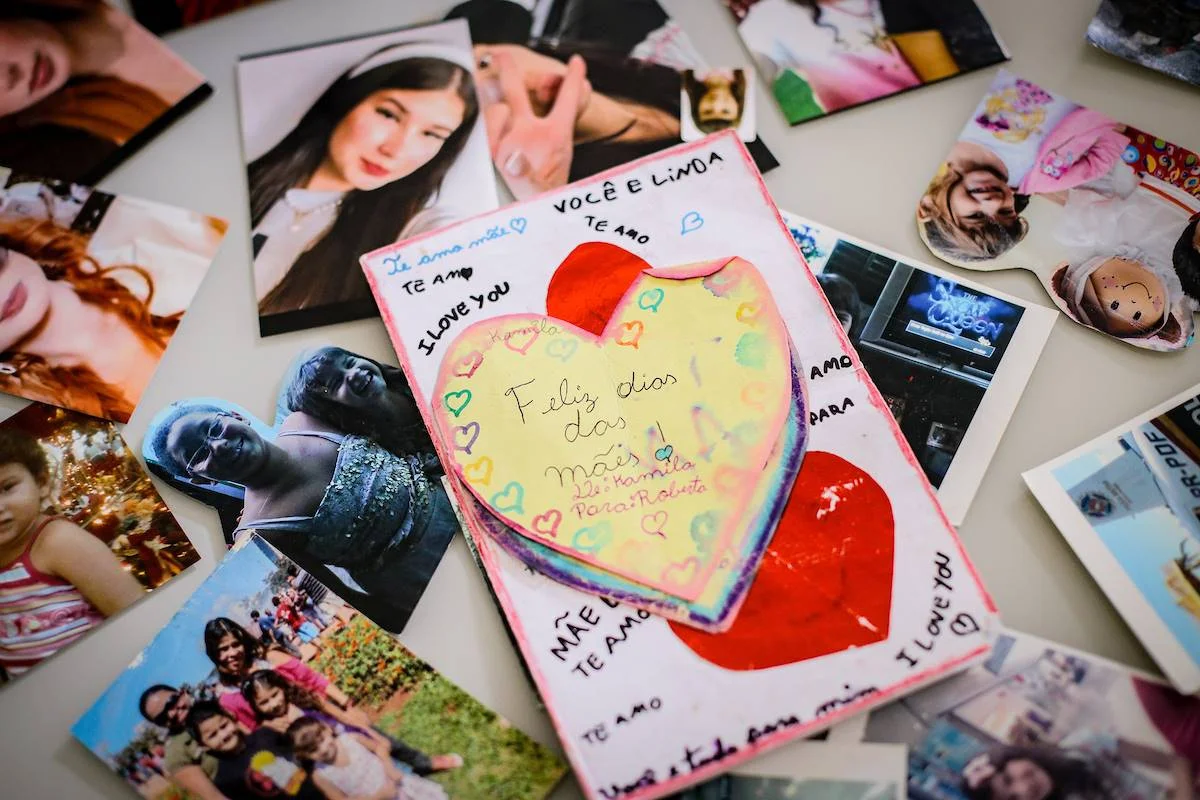 VOCÊ E LINDA
Te amo mãe
TE AMO
TE AMO
I LOVE YOU
Kamila
Feliz dias
das
mães!
Kamila
Para: Roberta
AMO
PARA
MÃE
TE AMO
I LOVE YOU
TE AMO
Você é tudo para mim
THE
SNOW
QUEEN
POR-PDF